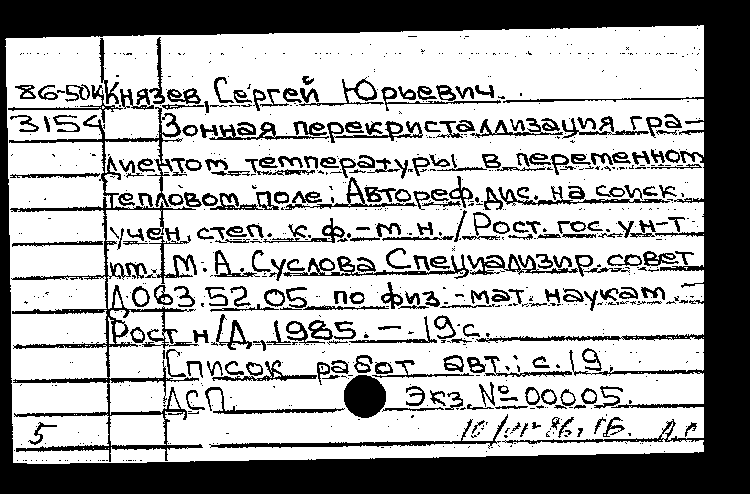 86-50К Князев, Сергей Юрьевич.
3154 Зонная перекристаллизация гра-
диентом температуры в переменном
тепловом поле: Автореф. дис. на соиск.
учен. степ. к. ф.-м. н. / Рост. гос. ун-т
им. М. А. Суслова Специализир. совет
Д 063.52.05 по физ.-мат. наукам. -
Рост н/Д, 1985. - 19 с.
Список работ авт.: с. 19.
ДСП. Экз. № 00005.
5 10/VII-86г.